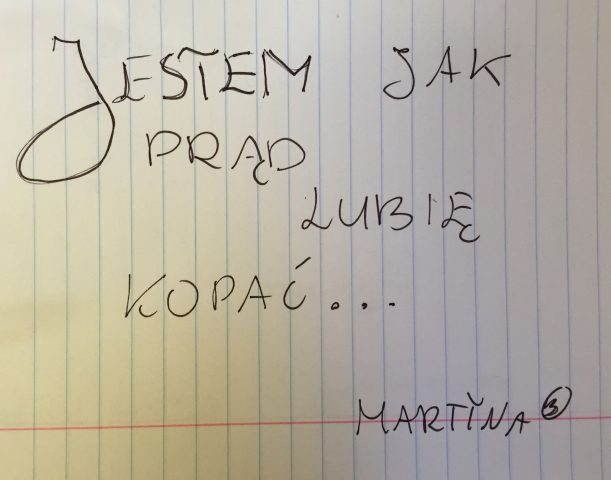 JESTEM JAK
PRĄD
LUBIĘ
KOPAĆ...
MARTINA ③